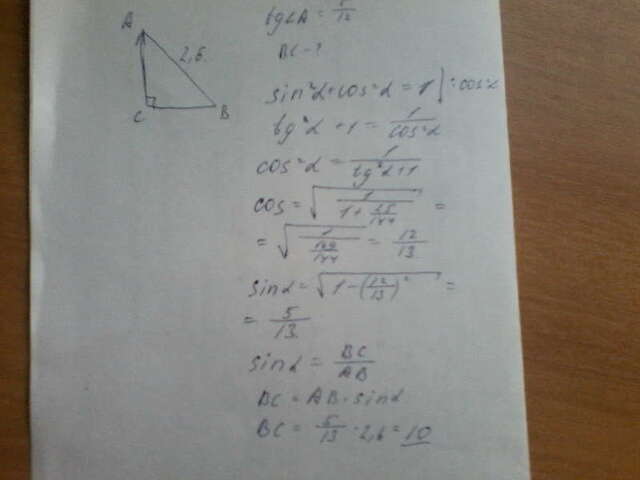 tg∠A = 5/12
A
2,6.
BC - ?
C
B
sin²α + cos²α = 1 | : cos²α
tg²α + 1 = 1/cos²α
cos²α = 1/(tg²α+1)
cos = √(1/(1 + 25/144)) =
= √(1/(169/144)) = 12/13
sinα = √(1 - (12/13)²) =
= 5/13.
sinα = BC/AB
BC = AB · sinα
BC = 5/13 · 2,6 = 10